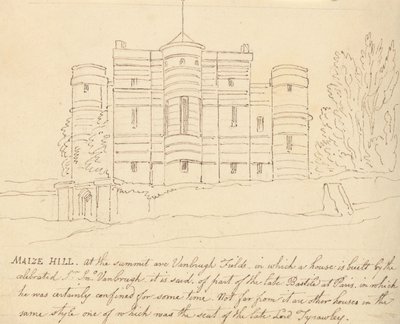 MAIZE HILL. at the summit are Vanbrugh Fields, in which a house is built by the
celebrated Sr. Jno. Vanbrugh. it is said, of part of the late Bastile at Paris, in which
he was certainly confined for some time. Not far from it are other houses in the
same style one of which was the seat of the late Lord Tyrawley.